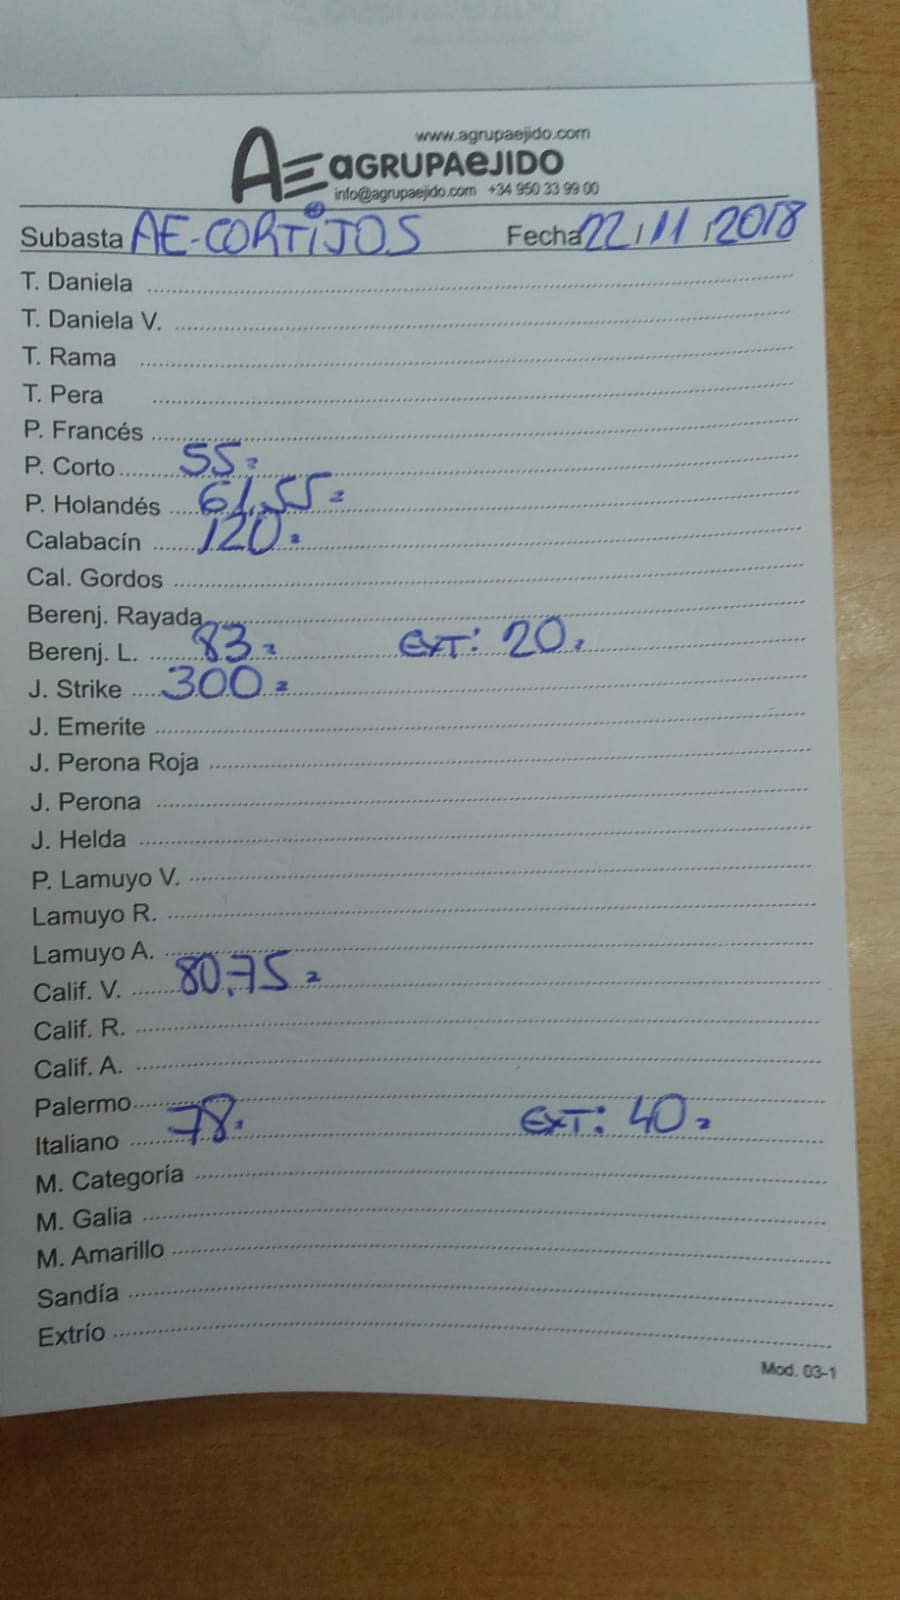 www.agrupaejido.com
AE aGRUPAeJIDO
info@agrupaejido.com +34 950 33 99 00
Subasta AE-CORTIJOS Fecha 22/11/2018
T. Daniela
T. Daniela V.
T. Rama
T. Pera
P. Francés
P. Corto 55=
P. Holandés 61,55=
Calabacín 120=
Cal. Gordos
Berenj. Rayada
Berenj. L. 83= EXT: 20=
J. Strike 300=
J. Emerite
J. Perona Roja
J. Perona
J. Helda
P. Lamuyo V.
Lamuyo R.
Lamuyo A.
Calif. V. 80,75=
Calif. R.
Calif. A.
Palermo
Italiano 78= EXT: 40=
M. Categoría
M. Galia
M. Amarillo
Sandía
Extrío
Mod. 03-1